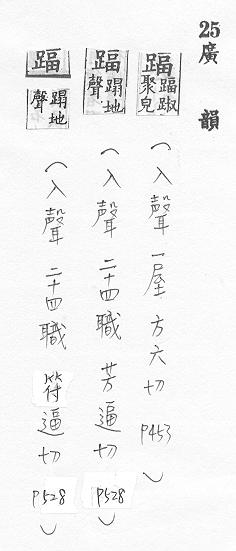 25
廣韻
踾 踾踧聚皃
（入聲 一屋 方六切 P453）
踾 蹋地聲
（入聲 二十四職 芳逼切 P528）
踾 蹋地聲
（入聲 二十四職 符逼切 P528）